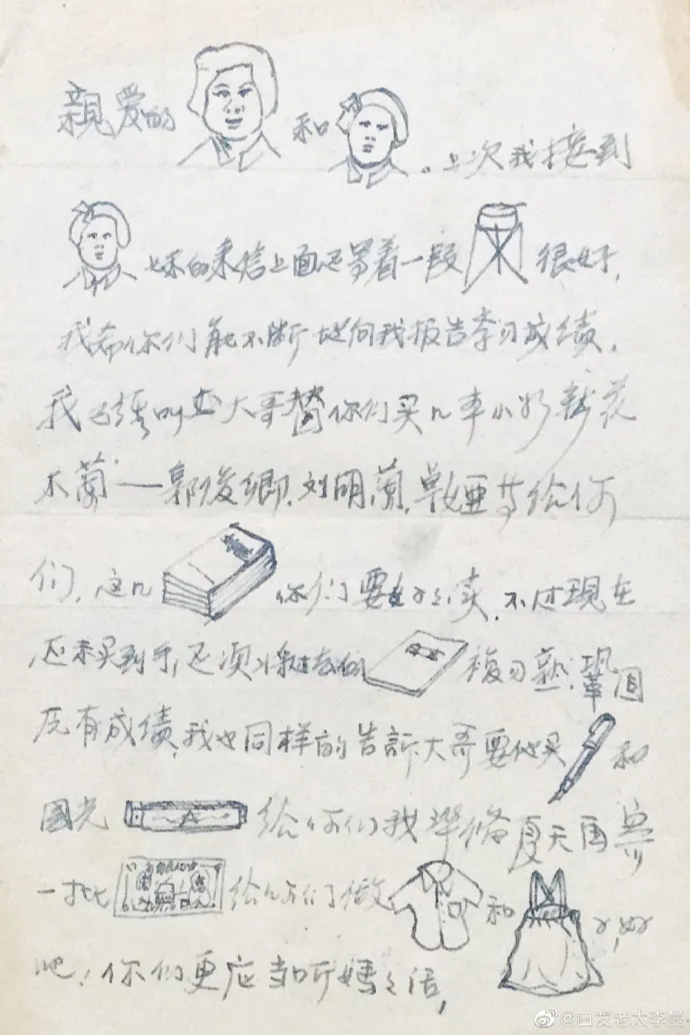 親爱的 和 。上次我接到
妹的来信上面还写着一段 很好,
我希你们能不断地向我报告学习成绩.
我已经叫 大哥替你们买几本小
木蘭——郭俊卿.刘明蘭. 等给你
们,这几 你们要好好读,不过現在
还未买到手,还须将 复习熟.鞏固
原有成绩,我也同样的告訴大哥要他买 和
國光 给你们我準俻夏天再寄
一批 给你们做 和 好
吧!你们更应当听媽媽话,
@白发老太李曼